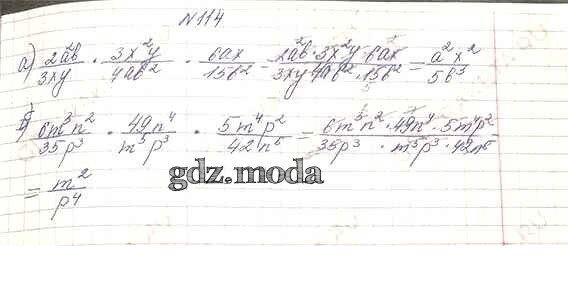 №114
а) 2a²b/3xy · 3x²y/4ab² · 6ax/15b² = 2a²b·3x²y·6ax/3xy·4ab²·15b² = a²x²/5b³
б) 6m³n²/35p³ · 49n⁴/m⁵p³ · 5m⁴p²/42n⁶ = 6m³n²·49n⁴·5m⁴p²/35p³·m⁵p³·42n⁶
= m²/p⁴
gdz.moda